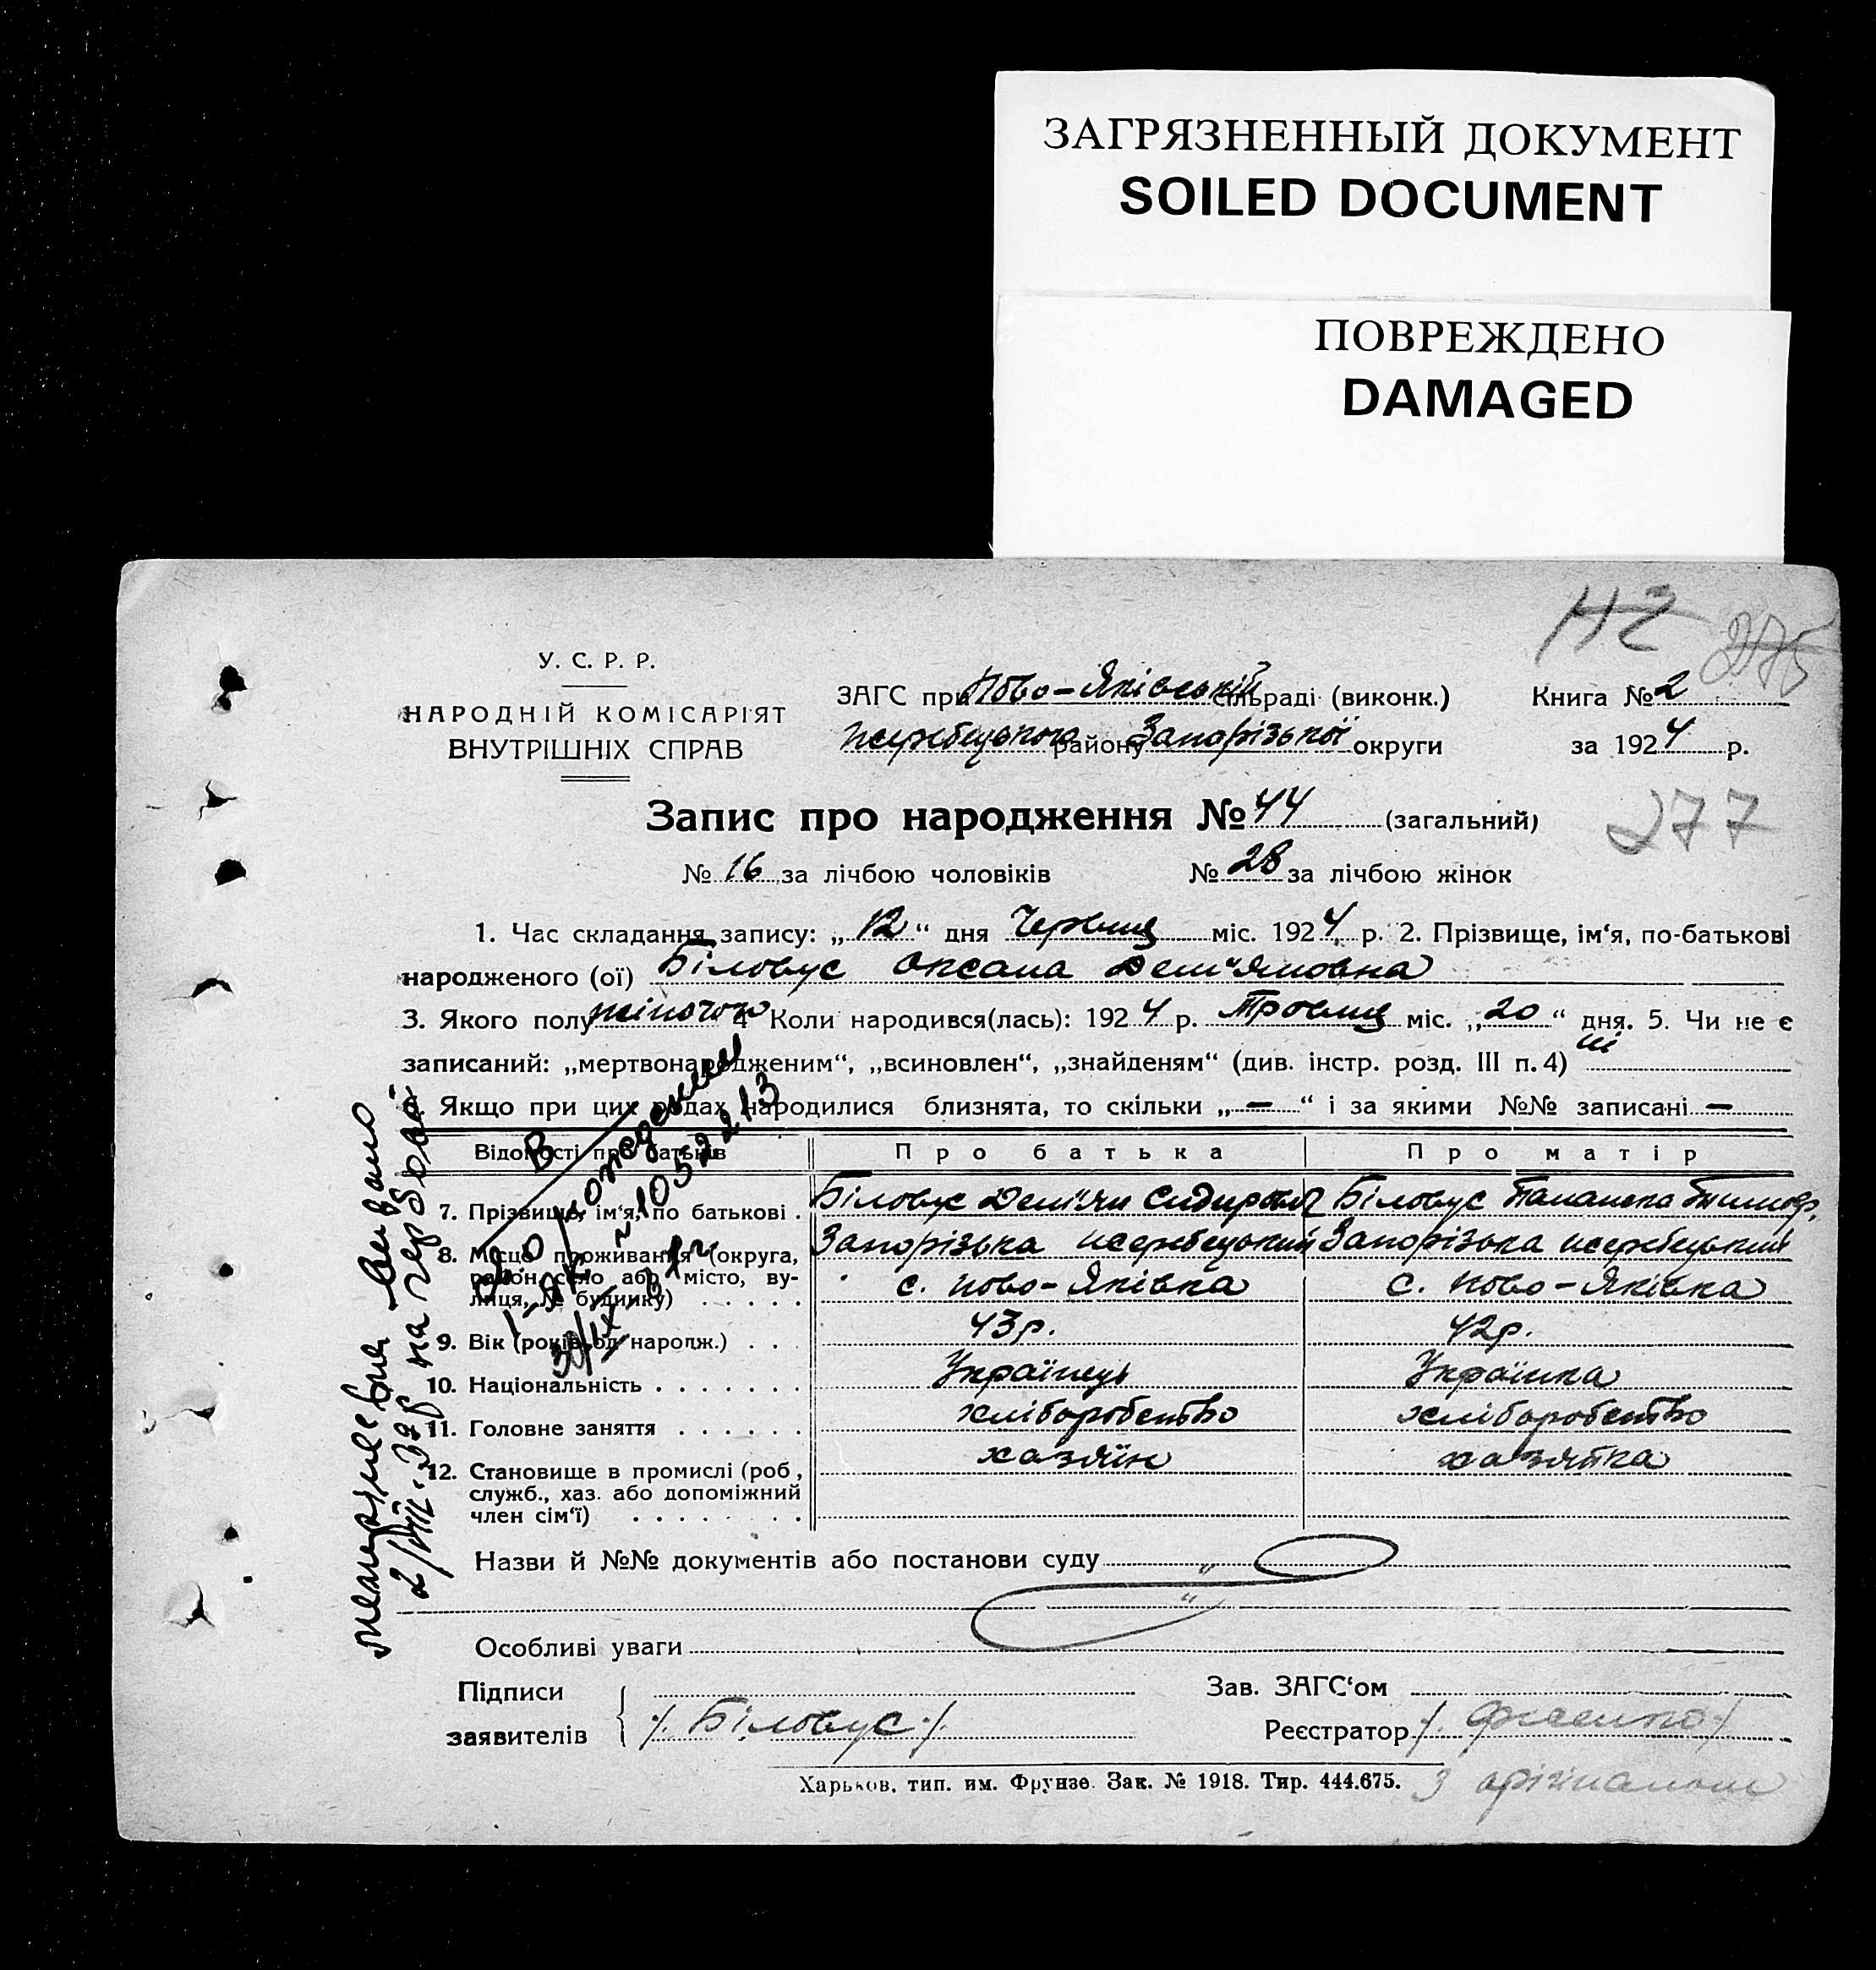 ЗАГРЯЗНЕННЫЙ ДОКУМЕНТ
SOILED DOCUMENT
ПОВРЕЖДЕНО
DAMAGED
275
У. С. Р. Р.
НАРОДНІЙ КОМІСАРІЯТ
ВНУТРІШНІХ СПРАВ
ЗАГС при Ново-Яківській сільраді (виконк.) Книга № 2
району Запорізької округи за 1924 р.
Запис про народження № 44 (загальний)
277
№ 16 за лічбою чоловіків № 28 за лічбою жінок
1. Час складання запису: „12“ дня Червня міс. 1924 р. 2. Прізвище, ім‘я, по-батькові
народженого (ої) Біловус Оксана Дем‘яновна
3. Якого полу жіночого 4 Коли народився(лась): 1924 р. міс. „20“ дня. 5. Чи не є
записаний: „мертвонародженим“, „всиновлен“, „знайденям“ (див. інстр. розд. III п. 4) ні
6. Якщо при цих родах народилися близнята, то скільки „—“ і за якими №№ записані —
Відомості про батьків Про батька Про матір
7. Прізвище, ім‘я, по батькові . Біловус Дем‘ян Біловус
8. Місце проживання (округа, район, село або місто, ву-лиця, № будинку) . . . . . Запорізька Запорізька
с. Ново-Яківка с. Ново-Яківка
9. Вік (років од народж.) . . . 43р. 42р.
10. Національність . . . . . . . Українець Українка
11. Головне заняття . . . . . . хліборобство хліборобство
12. Становище в промислі (роб., служб., хаз. або допоміжний член сім‘ї) . . . . . . . . хазяїн хазяйка
Назви й №№ документів або постанови суду
Особливі уваги
Підписи
заявителів /. Біловус ./
Зав. ЗАГС‘ом
Реєстратор
Харьков, тип. им. Фрунзе. Зак. № 1918. Тир. 444.675.
З орігіналом